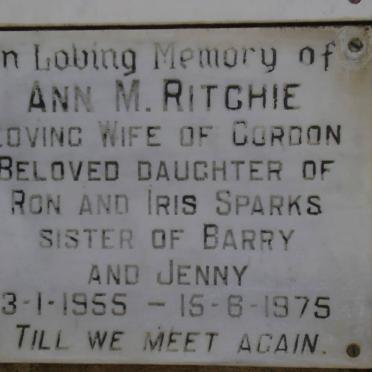 In Loving Memory of
ANN M. RITCHIE
LOVING WIFE OF GORDON
BELOVED DAUGHTER OF
RON AND IRIS SPARKS
SISTER OF BARRY
AND JENNY
3-1-1955 - 15-6-1975
TILL WE MEET AGAIN.